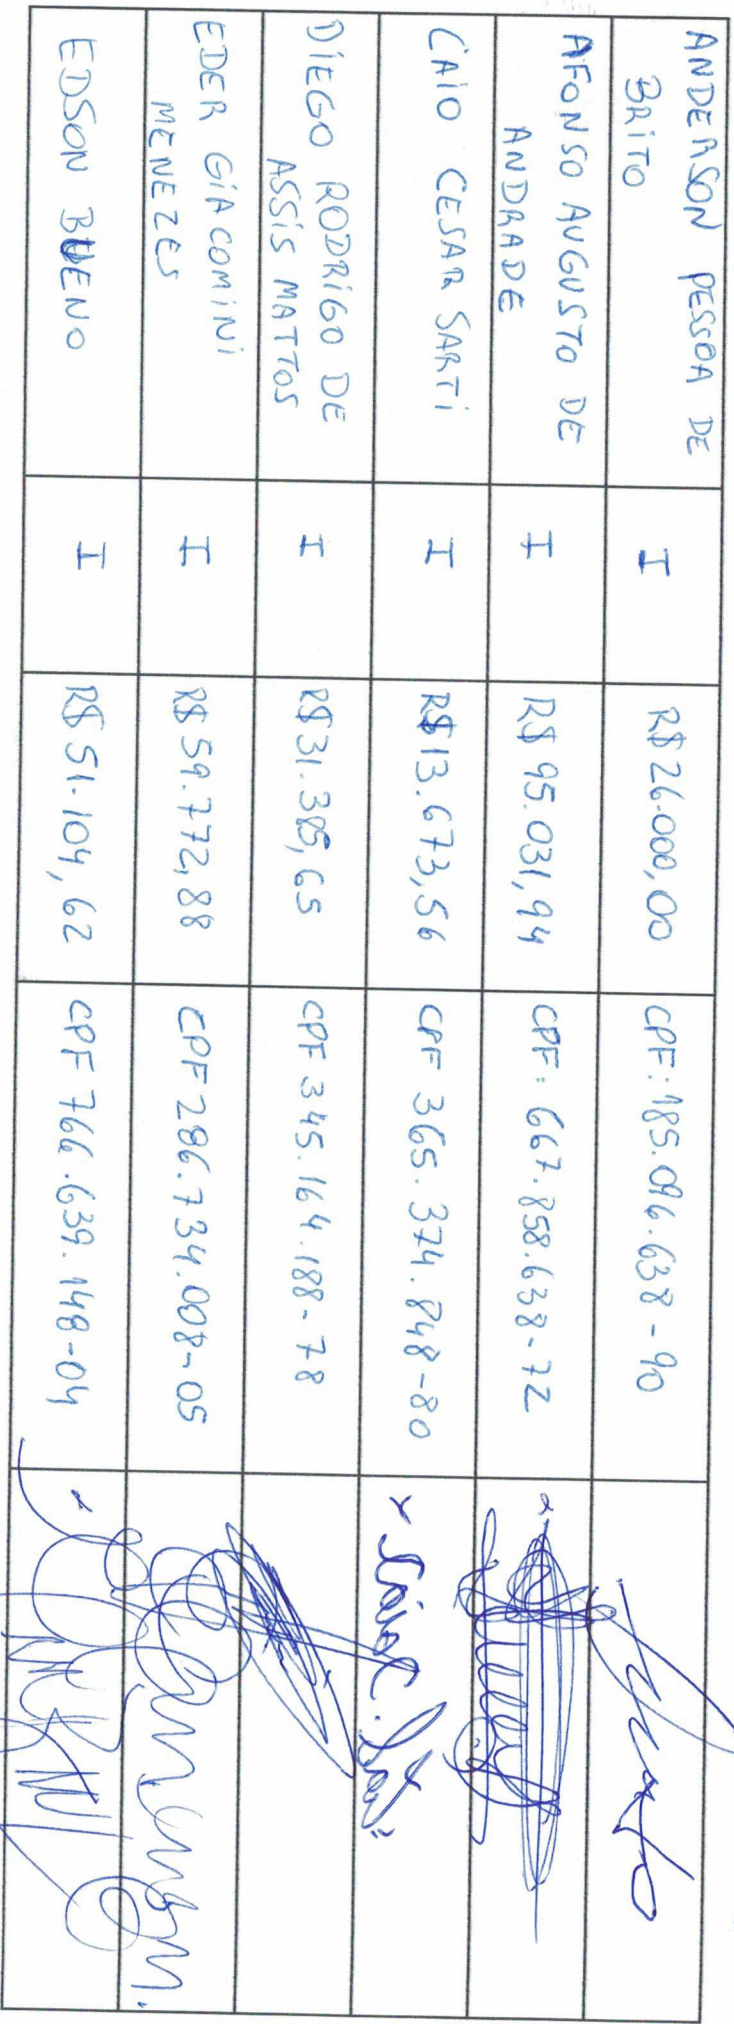 ANDERSON PESSOA DE
BRITO
I
R$ 26.000,00
CPF: 185.096.638-90
AFONSO AUGUSTO DE
ANDRADE
I
R$ 95.031,94
CPF: 667.858.638-72
CAIO CESAR SARTI
I
R$ 13.673,56
CPF 365.374.848-80
DIEGO RODRIGO DE
ASSIS MATTOS
I
R$ 31.385,65
CPF 345.164.188-78
EDER GIACOMINI
MENEZES
I
R$ 59.772,88
CPF 286.734.008-05
EDSON BUENO
I
R$ 51.104,62
CPF 766.639.148-04